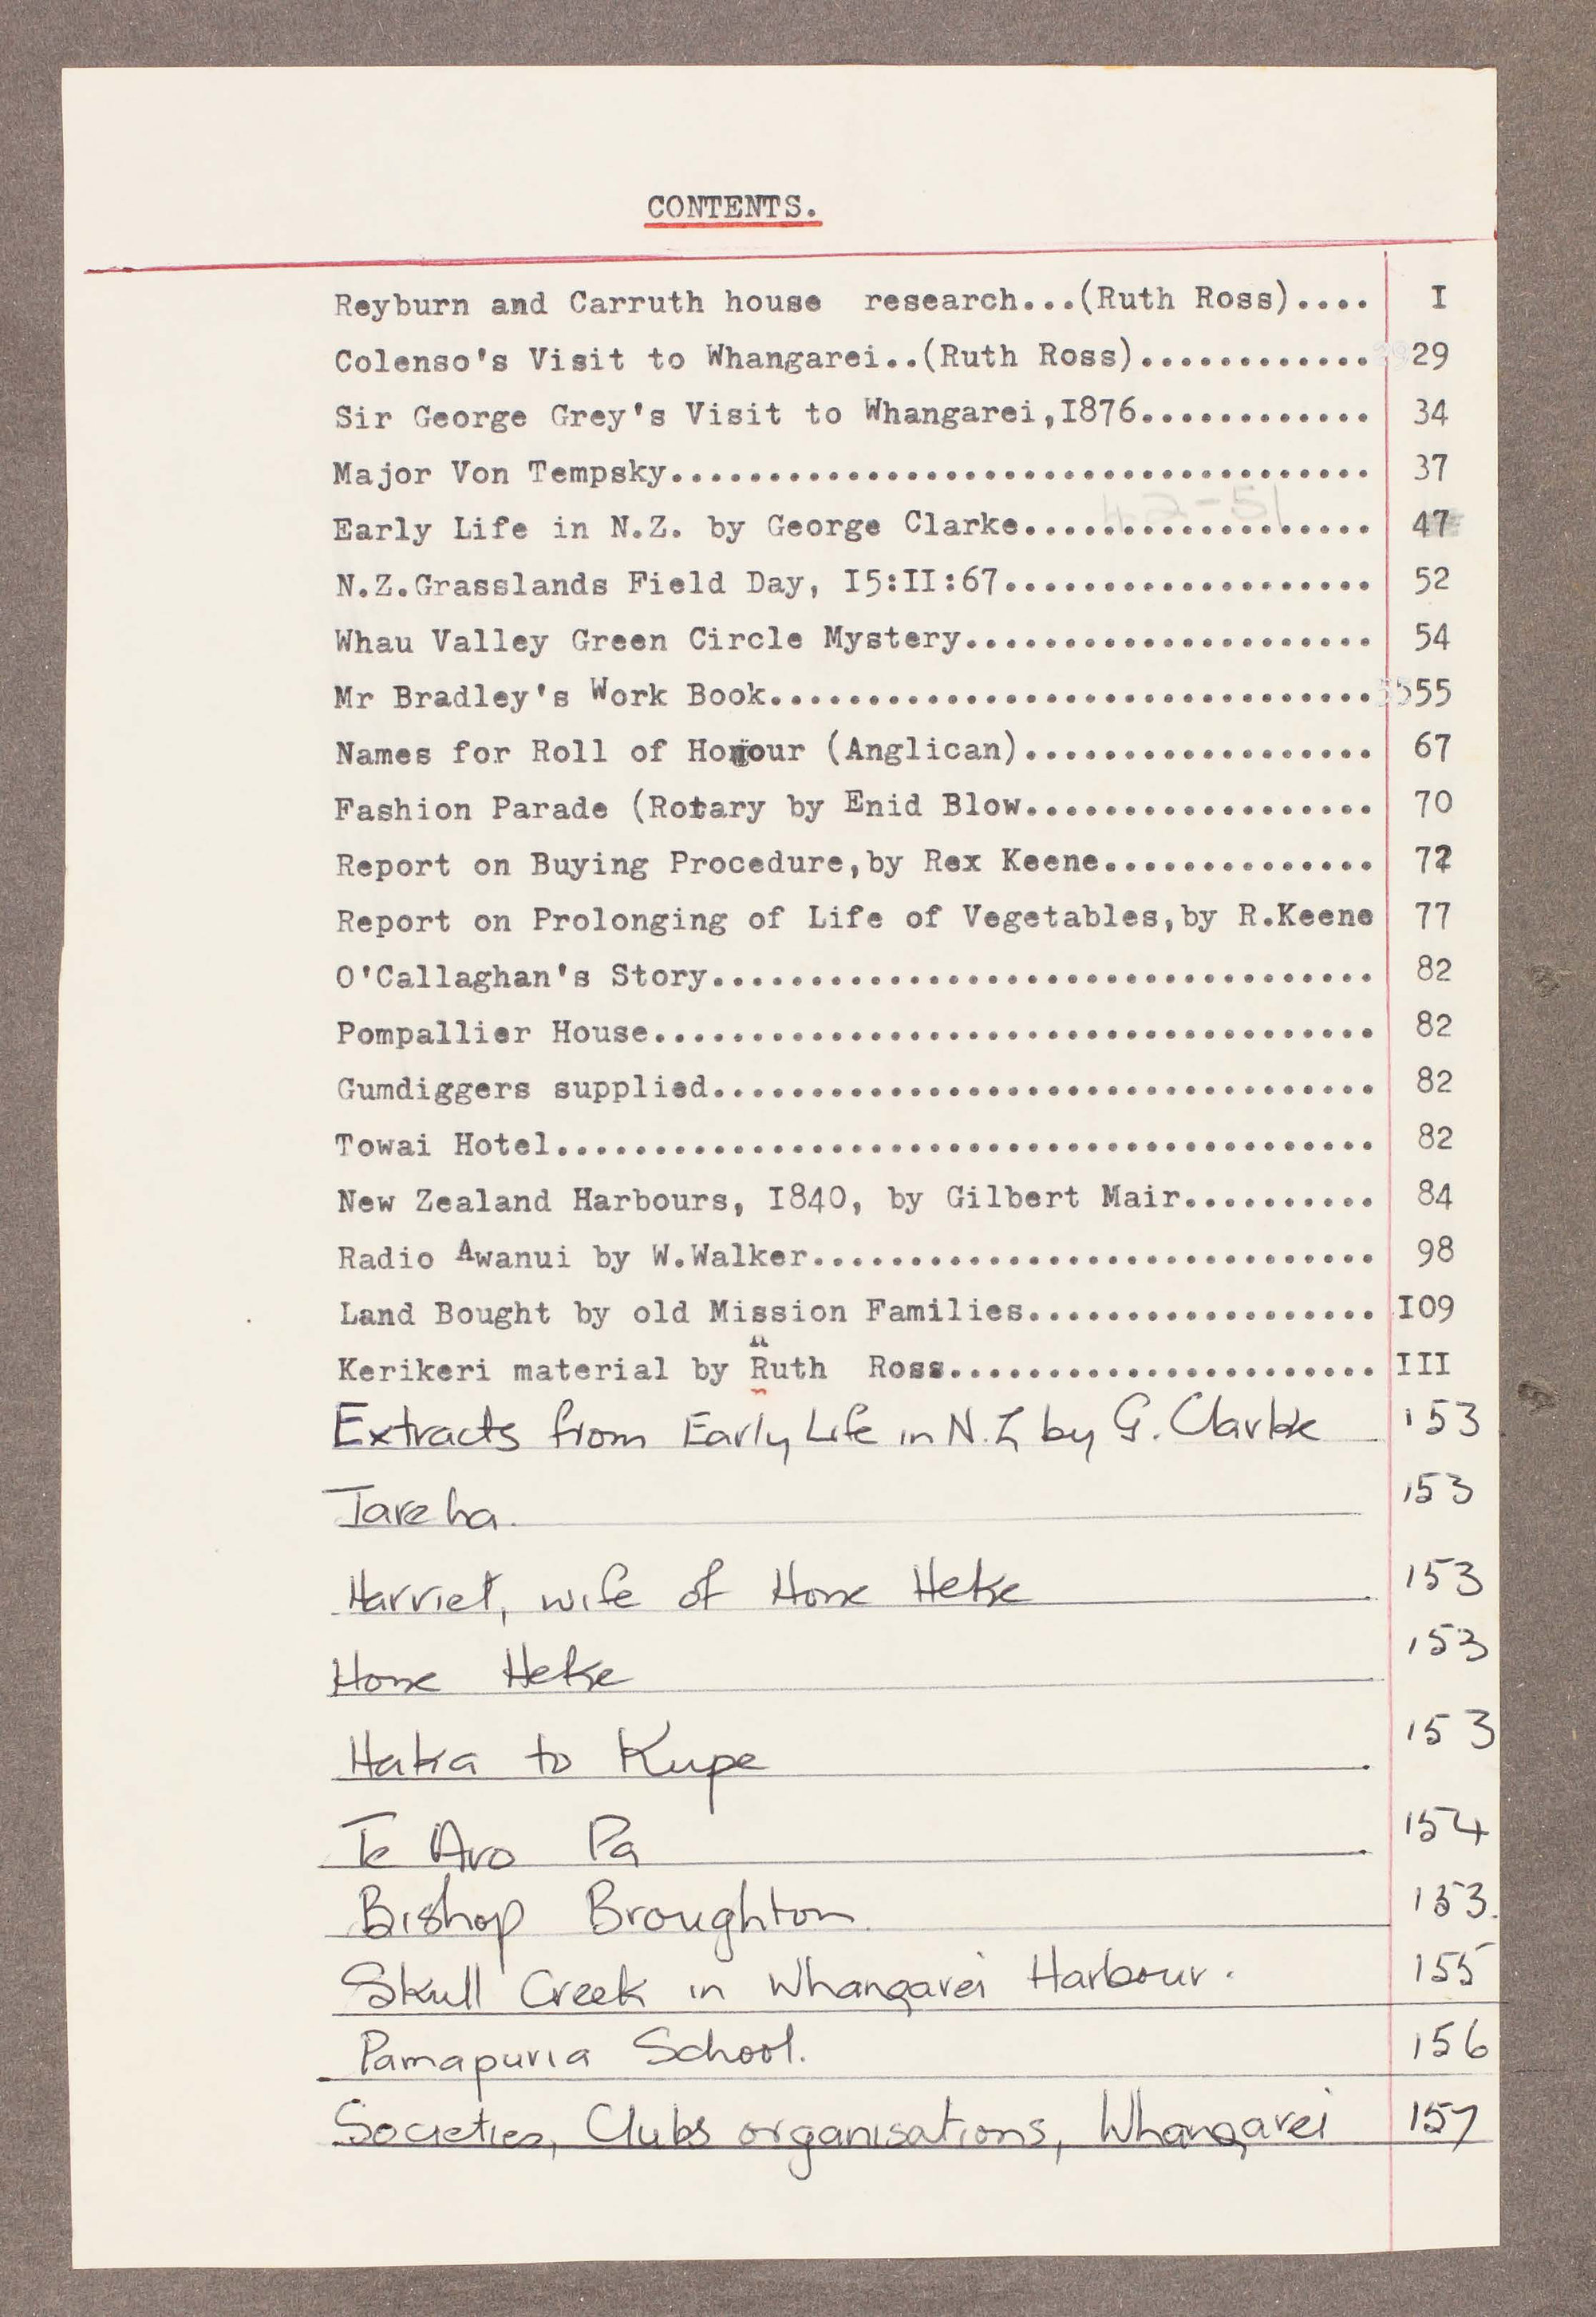 CONTENTS.
Reyburn and Carruth house research...(Ruth Ross).... I
Colenso's Visit to Whangarei..(Ruth Ross)............ 29
Sir George Grey's Visit to Whangarei,I876............ 34
Major Von Tempsky.................................... 37
42-51
Early Life in N.Z. by George Clarke.................. 47
N.Z.Grasslands Field Day, I5:II:67................... 52
Whau Valley Green Circle Mystery..................... 54
Mr Bradley's Work Book............................... 55
Names for Roll of Honour (Anglican).................. 67
Fashion Parade (Rotary by Enid Blow.................. 70
Report on Buying Procedure,by Rex Keene.............. 72
Report on Prolonging of Life of Vegetables,by R.Keene 77
O'Callaghan's Story.................................. 82
Pompallier House..................................... 82
Gumdiggers supplied.................................. 82
Towai Hotel.......................................... 82
New Zealand Harbours, I840, by Gilbert Mair.......... 84
Radio Awanui by W.Walker............................. 98
Land Bought by old Mission Families.................. I09
Kerikeri material by Ruth Ross...................... III
Extracts from Early Life in N.Z by G. Clarke 153
Tareha. 153
Harriet, wife of Hone Heke 153
Hone Heke 153
Haka to Kupe 153
Te Aro Pa 154
Bishop Broughton. 153.
Skull Creek in Whangarei Harbour. 155
Pamapuria School. 156
Societies, Clubs organisations, Whangarei 157